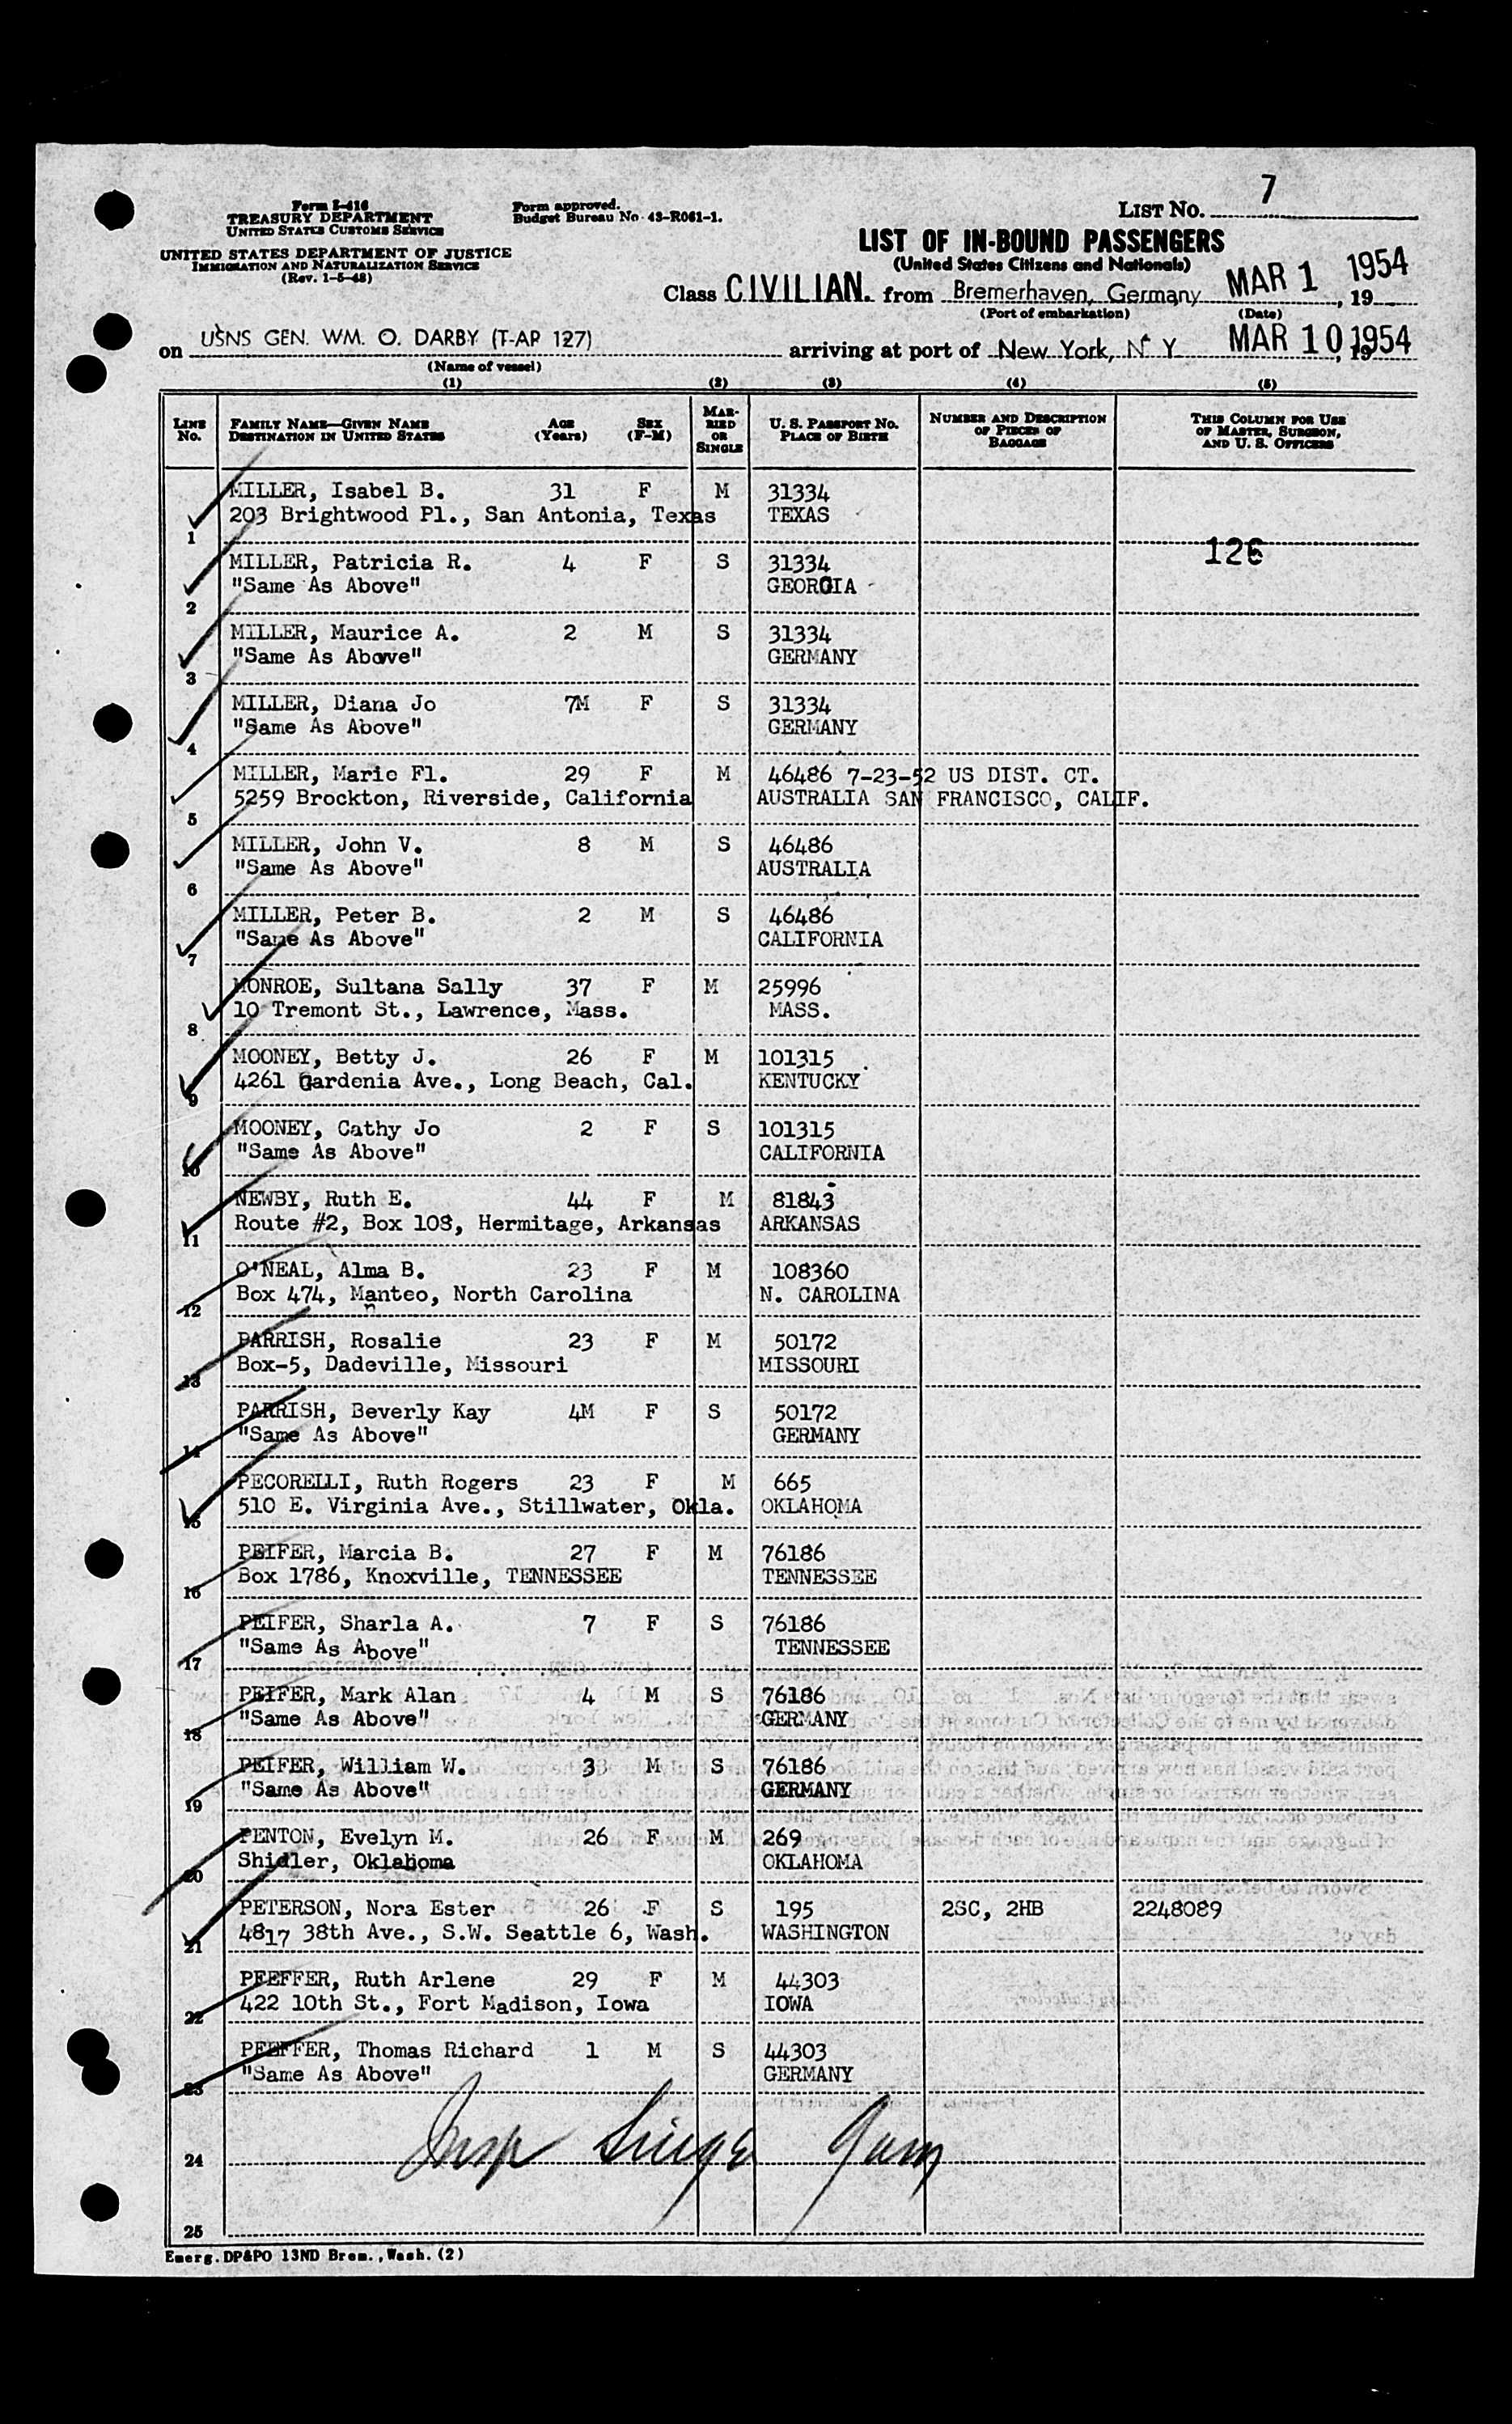 7
LIST NO.
Form I-416
TREASURY DEPARTMENT
UNITED STATES CUSTOMS SERVICE
UNITED STATES DEPARTMENT OF JUSTICE
IMMIGRATION AND NATURALIZATION SERVICE
(Rev. 1-5-48)
Form approved.
Budget Bureau No. 43-R061-1.
LIST OF IN-BOUND PASSENGERS
(United States Citizens and Nationals)
Class CIVILIAN. from Bremerhaven, Germany MAR 1 1954, 19
(Port of embarkation) (Date)
on USNS GEN. WM. O. DARBY (T-AP 127) arriving at port of New York, N Y MAR 10 1954, 19
(Name of vessel)
(1) (2) (3) (4) (5)
LINE No. FAMILY NAME—GIVEN NAME DESTINATION IN UNITED STATES AGE (Years) SEX (F-M) MARRIED OR SINGLE U. S. PASSPORT NO. PLACE OF BIRTH NUMBER AND DESCRIPTION OF PIECES OF BAGGAGE THIS COLUMN FOR USE OF MASTER, SURGEON, AND U. S. OFFICERS
MILLER, Isabel B. 31 F M 31334
1 203 Brightwood Pl., San Antonia, Texas TEXAS
126
MILLER, Patricia R. 4 F S 31334
2 "Same As Above" GEORGIA
MILLER, Maurice A. 2 M S 31334
3 "Same As Above" GERMANY
MILLER, Diana Jo 7M F S 31334
4 "Same As Above" GERMANY
MILLER, Marie Fl. 29 F M 46486 7-23-52 US DIST. CT.
5 5259 Brockton, Riverside, California AUSTRALIA SAN FRANCISCO, CALIF.
MILLER, John V. 8 M S 46486
6 "Same As Above" AUSTRALIA
MILLER, Peter B. 2 M S 46486
7 "Same As Above" CALIFORNIA
MONROE, Sultana Sally 37 F M 25996
8 10 Tremont St., Lawrence, Mass. MASS.
MOONEY, Betty J. 26 F M 101315
9 4261 Gardenia Ave., Long Beach, Cal. KENTUCKY
MOONEY, Cathy Jo 2 F S 101315
10 "Same As Above" CALIFORNIA
NEWBY, Ruth E. 44 F M 81843
11 Route #2, Box 108, Hermitage, Arkansas ARKANSAS
O'NEAL, Alma B. 23 F M 108360
12 Box 474, Manteo, North Carolina N. CAROLINA
PARRISH, Rosalie 23 F M 50172
13 Box-5, Dadeville, Missouri MISSOURI
PARRISH, Beverly Kay 4M F S 50172
14 "Same As Above" GERMANY
PECORELLI, Ruth Rogers 23 F M 665
15 510 E. Virginia Ave., Stillwater, Okla. OKLAHOMA
PEIFER, Marcia B. 27 F M 76186
16 Box 1786, Knoxville, TENNESSEE TENNESSEE
PEIFER, Sharla A. 7 F S 76186
17 "Same As Above" TENNESSEE
PEIFER, Mark Alan 4 M S 76186
18 "Same As Above" GERMANY
PEIFER, William W. 3 M S 76186
19 "Same As Above" GERMANY
PENTON, Evelyn M. 26 F M 269
20 Shidler, Oklahoma OKLAHOMA
PETERSON, Nora Ester 26 F S 195 2SC, 2HB 2248089
21 4817 38th Ave., S.W. Seattle 6, Wash. WASHINGTON
PFEFFER, Ruth Arlene 29 F M 44303
22 422 10th St., Fort Madison, Iowa IOWA
PFEFFER, Thomas Richard 1 M S 44303
23 "Same As Above" GERMANY
Insp
24
25
Emerg. DP&PO 13ND Brem., Wash. (2)